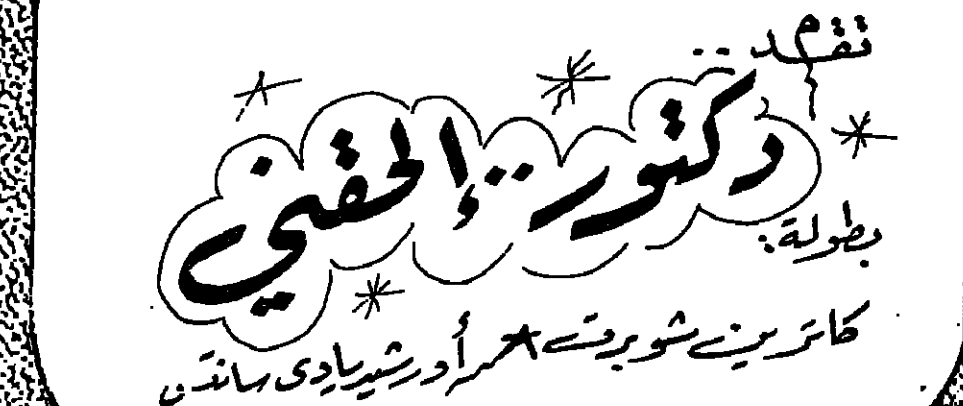 تقدم ..
دكتور .. إلحقني
بطولة:
كاترين شوبرت * أدرشير يادى ساندى